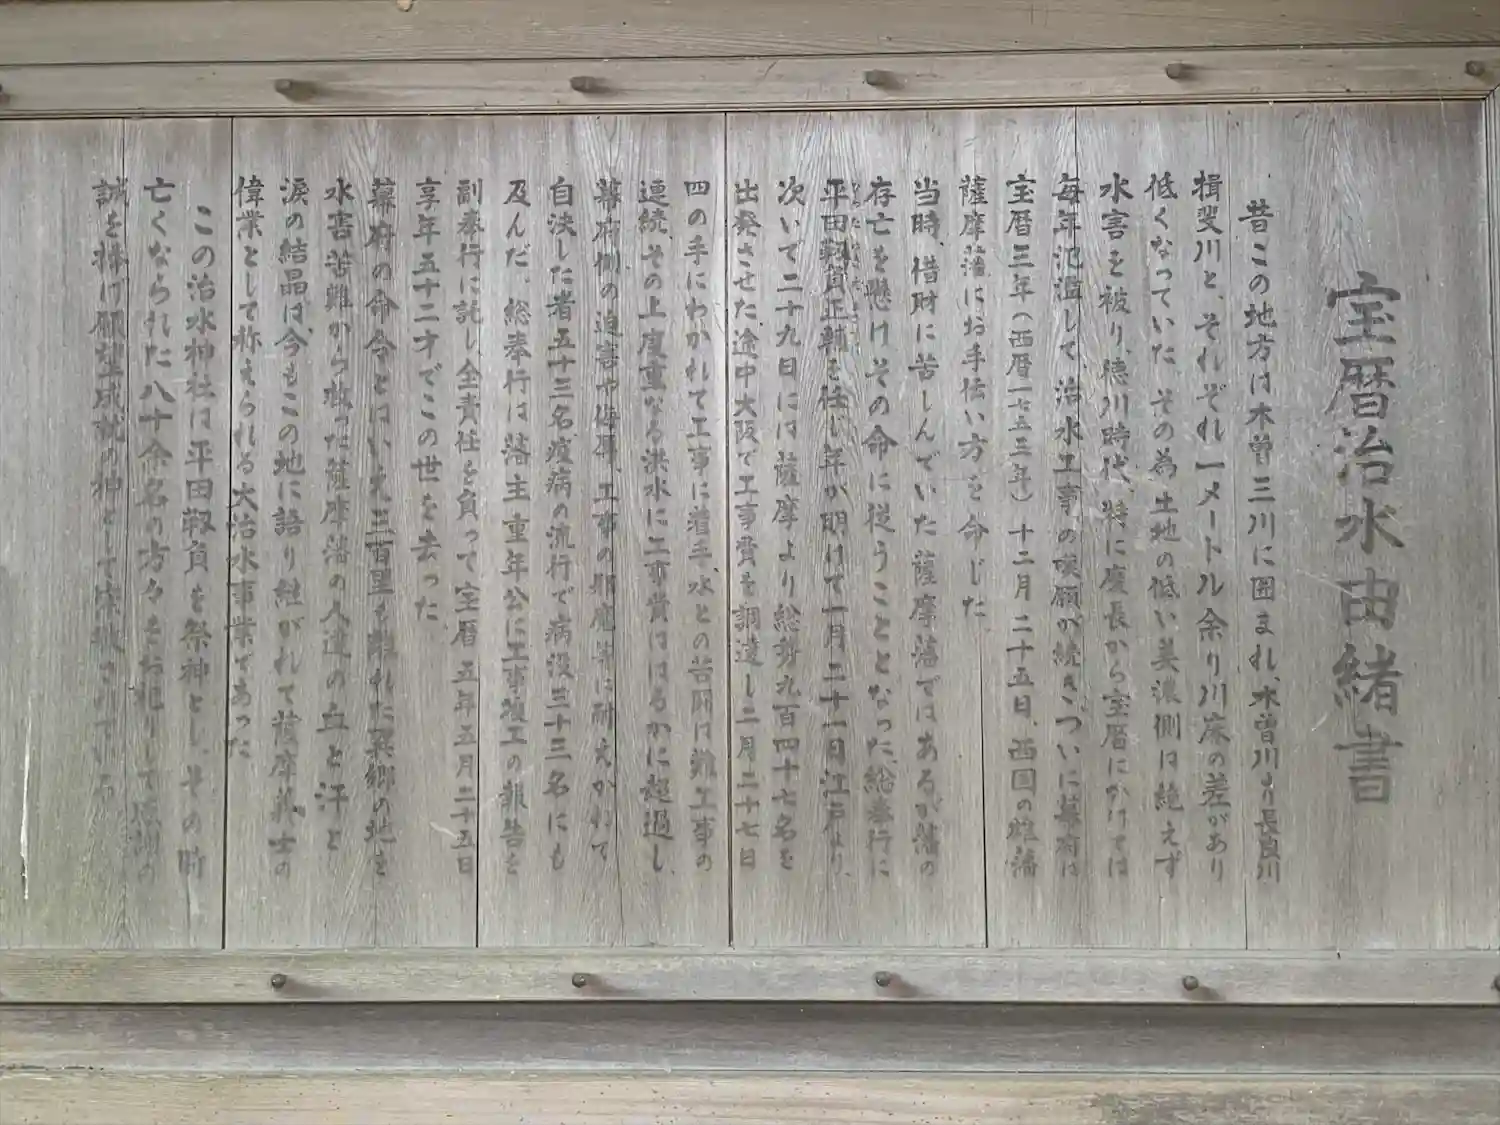 宝暦治水由緒書
昔この地方は木曽三川に囲まれ、木曽川より長良川
揖斐川と、それぞれ一メートル余り川床の差があり
低くなっていた。その為土地の低い美濃側は絶えず
水害を被り、徳川時代、特に慶長から宝暦にかけては
毎年氾濫して、治水工事の嘆願が続きついに幕府は
宝暦三年(西暦一七五三年)十二月二十五日、西国の雄藩
薩摩藩にお手伝い方を命じた
当時、借財に苦しんでいた薩摩藩ではあるが藩の
存亡を懸けその命に従うこととなった、総奉行に
平田靱負正輔を任し年が明けて一月二十一日江戸より、
次いで二十九日には薩摩より総勢九百四十七名を
出発させた途中大阪で工事費を調達し二月二十七日
四の手にわかれて工事に着手、水との苦闘は難工事の
連続、その上度重なる洪水に工事費ははるかに超過し、
幕府側の迫害や侮辱、工事の邪魔等に耐えかねて
自決した者五十三名疫病の流行で病没三十三名にも
及んだ、総奉行は藩主重年公に工事竣工の報告を
副奉行に託し全責任を負って宝暦五年五月二十五日
享年五十二才でこの世を去った、
幕府の命令とはいえ三百里も離れた異郷の地を
水害苦難から救った薩摩藩の人達の血と汗と
涙の結晶は、今もこの地に語り継がれて薩摩義士の
偉業として称えられる大治水事業であった
この治水神社は平田靱負を祭神とし、その時
亡くなられた八十余名の方々をお祀りして感謝の
誠を捧げ願望成就の神として崇敬されている